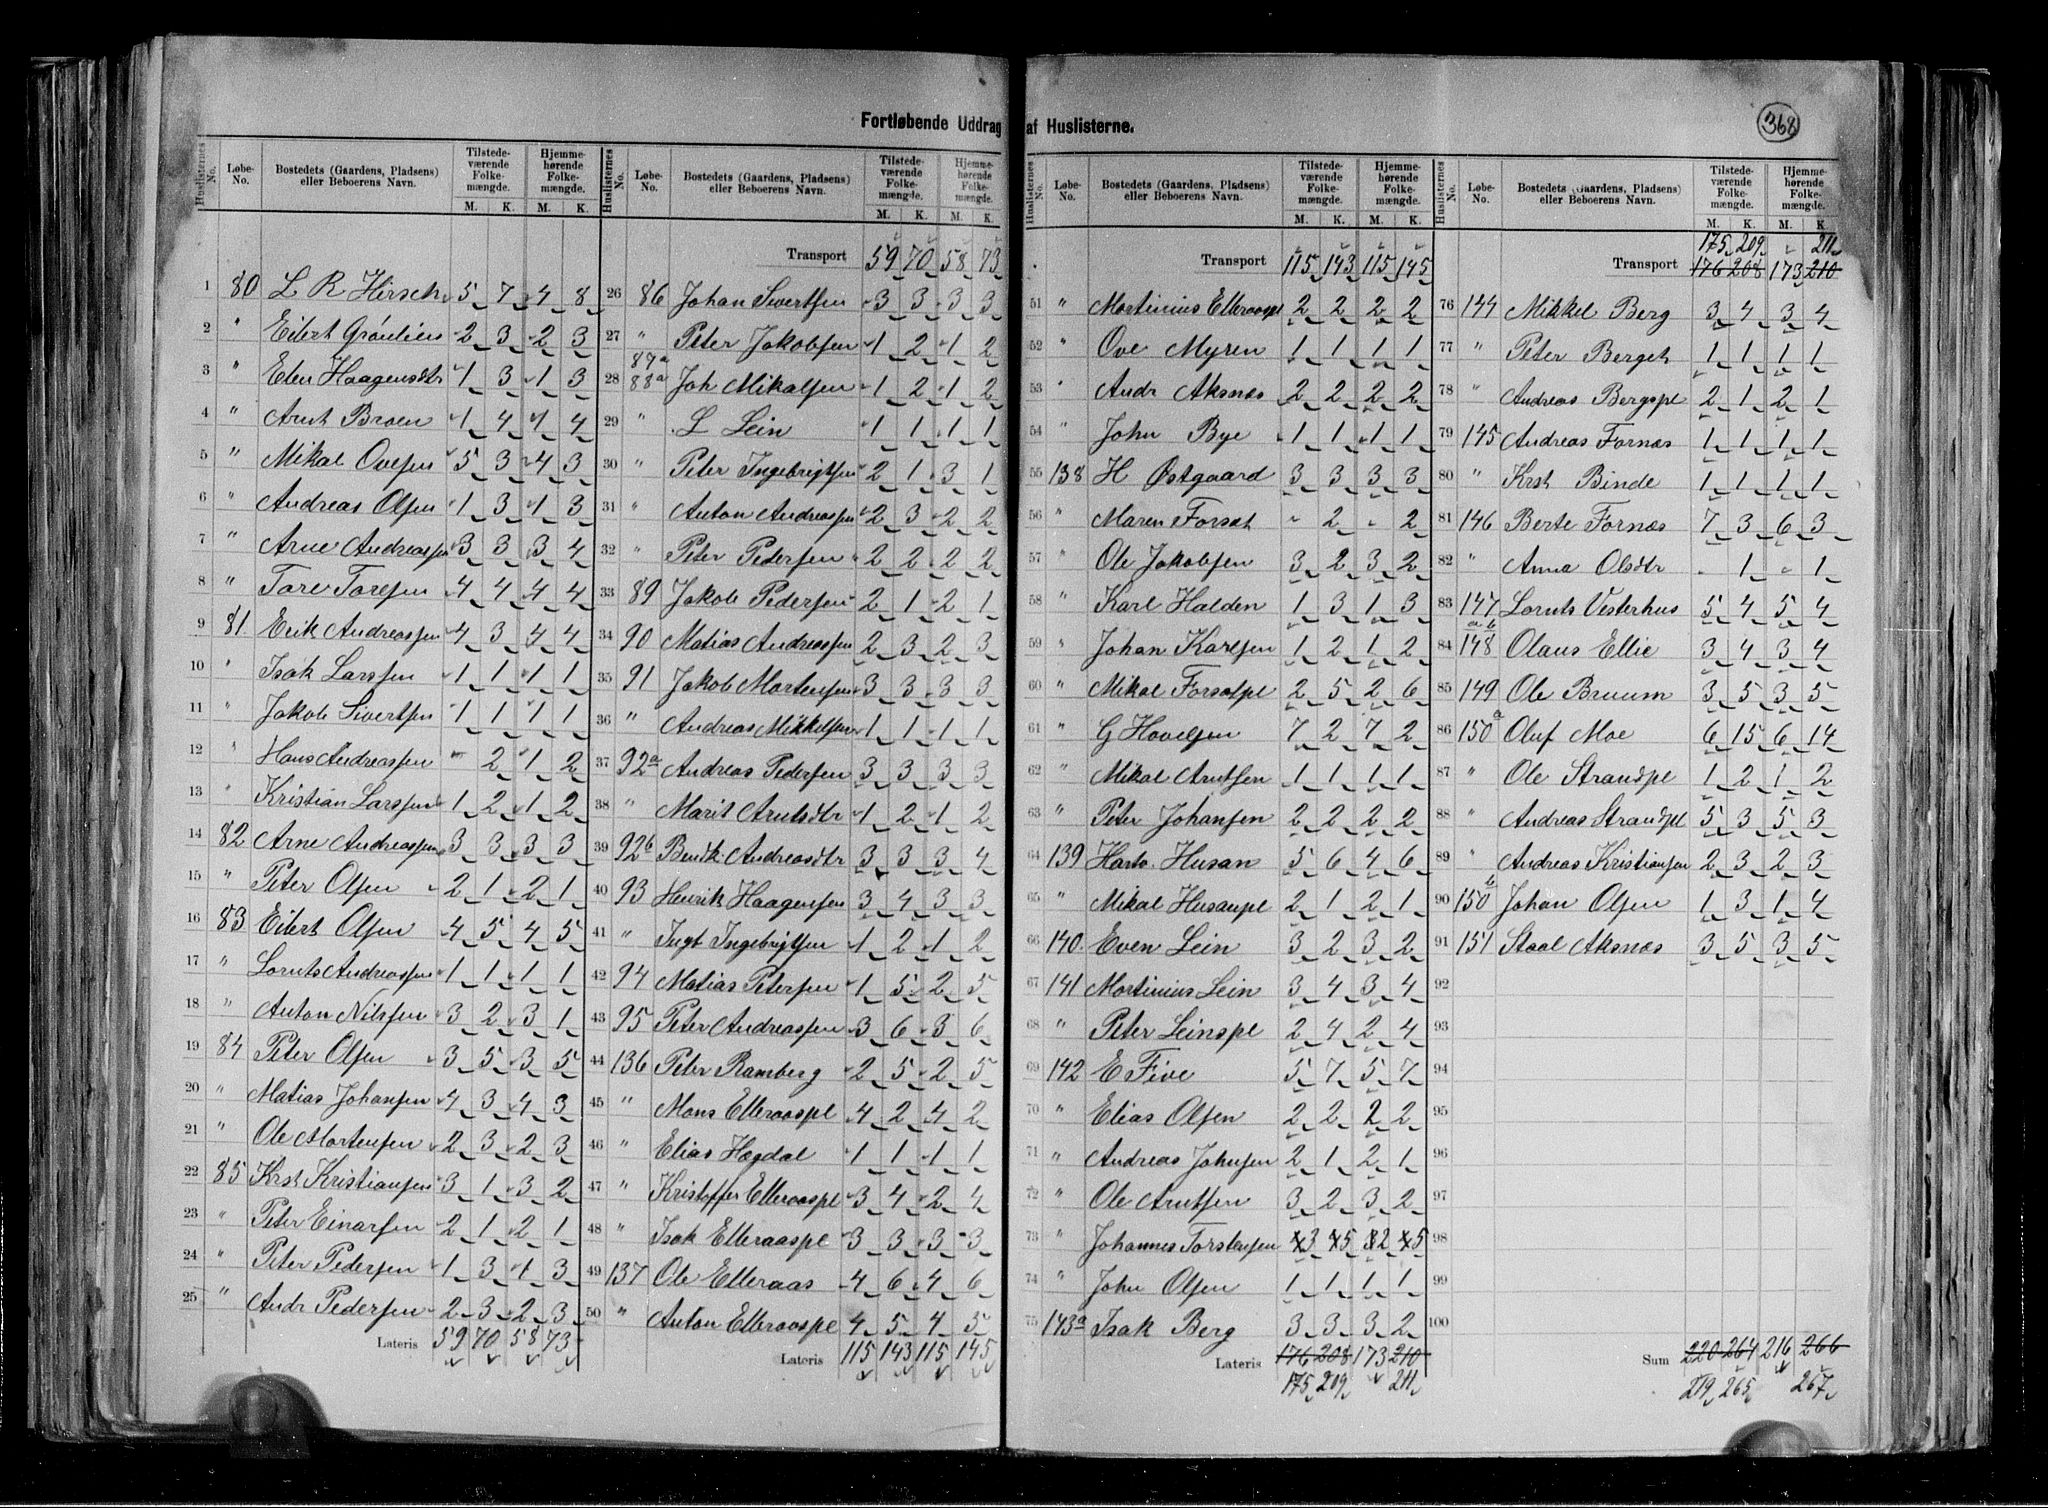 Fortløbende Uddrag af Huslisterne.
368
Huslisternes No. Løbe-No. Bostedets (Gaardens, Pladsens) eller Beboerens Navn. Tilstedeværende Folkemængde. M. K. Hjemmehørende Folkemængde. M. K.
1 80 L R Hirsch 5 7 4 8
2 " Eilert Grönlien 2 3 2 3
3 " Elen Haagensdtr 1 3 1 3
4 " Arnt Broen 1 4 1 4
5 " Mikal Ovesen 5 3 4 3
6 " Andreas Olsen 1 3 1 3
7 " Arne Andreassen 3 3 3 4
8 " Tore Toresen 4 4 4 4
9 81 Erik Andreassen 4 3 4 4
10 " Isak Larssen 1 1 1 1
11 " Jakob Sivertsen 1 1 1 1
12 " Hans Andreassen " 2 1 2
13 " Kristian Larssen 1 2 1 2
14 82 Arne Andreassen 3 3 3 3
15 " Peter Olsen 2 1 2 1
16 83 Eilert Olsen 4 5 4 5
17 " Lornts Andreassen 1 1 1 1
18 " Anton Nilssen 3 2 3 1
19 84 Peter Olsen 3 5 3 5
20 " Matias Johansen 4 3 4 3
21 " Ole Mortensen 2 3 2 3
22 85 Krst Kristiansen 3 1 3 2
23 " Peter Einarsen 2 1 2 1
24 " Peter Pedersen 1 3 1 3
25 " Andr Pedersen 2 3 2 3
Lateris 59 70 58 73
Huslisternes No. Løbe-No. Bostedets (Gaardens, Pladsens) eller Beboerens Navn. Tilstedeværende Folkemængde. M. K. Hjemmehørende Folkemængde. M. K.
Transport 59 70 58 73
26 86 Johan Sivertsen 3 3 3 3
27 " Peter Jakobsen 1 2 1 2
87a
28 88a Joh Mikalsen 1 2 1 2
29 " L Lein 1 1 1 1
30 " Peter Ingebrigtsen 2 1 3 1
31 " Anton Andreassen 2 3 2 2
32 " Peter Pedersen 2 2 2 2
33 89 Jakob Pedersen 2 1 2 1
34 90 Matias Andreassen 2 3 2 3
35 91 Jakob Mortensen 3 3 3 3
36 " Andreas Mikkelsen 1 1 1 1
37 92a Andreas Pedersen 3 3 3 3
38 " Marit Arntsdtr 1 2 1 2
39 92b Berit Andreasdtr 3 3 3 4
40 93 Henrik Haagensen 3 4 3 3
41 " Ingt Ingebrigtsen 1 2 1 2
42 94 Matias Petersen 1 5 2 5
43 95 Peter Andreassen 3 6 3 6
44 136 Peter Ramberg 2 5 2 5
45 " Mons Elleraaspl 4 2 4 2
46 " Elias Hegdal 1 1 1 1
47 " Kristoffer Elleraaspl 3 4 2 4
48 " Isak Elleraaspl 3 3 3 3
49 137 Ole Elleraas 4 6 4 6
50 " Anton Elleraaspl 4 5 4 5
Lateris 115 143 115 145
Huslisternes No. Løbe-No. Bostedets (Gaardens, Pladsens) eller Beboerens Navn. Tilstedeværende Folkemængde. M. K. Hjemmehørende Folkemængde. M. K.
Transport 115 143 115 145
51 " Mortinius Elleraaspl 2 2 2 2
52 " Ove Myren 1 1 1 1
53 " Andr Aksnæs 2 2 2 2
54 " John Bye 1 1 1 1
55 138 H Østgaard 3 3 3 3
56 " Maren Forset " 2 " 2
57 " Ole Jakobsen 3 2 3 2
58 " Karl Halden 1 3 1 3
59 " Johan Karlsen 1 2 1 2
60 " Mikal Forsetpl 2 5 2 6
61 " G Hovelsen 7 2 7 2
62 " Mikal Arntsen 1 1 1 1
63 " Peter Johansen 2 2 2 2
64 139 Hartv. Husan 5 6 4 6
65 " Mikal Husanpl 2 1 2 1
66 140 Even Lein 3 2 3 2
67 141 Mortinius Lein 3 4 3 4
68 " Peter Leinspl 2 4 2 4
69 142 E Five 5 7 5 7
70 " Elias Olsen 2 2 2 2
71 " Andreas Johnsen 2 1 2 1
72 " Ole Arntsen 3 2 3 2
73 " Johannes Torstensen 3 5 2 5
74 " John Olsen 1 1 1 1
75 143a Isak Berg 3 3 3 2
Lateris 176 208 173 210
175 209 211
Huslisternes No. Løbe-No. Bostedets (Gaardens, Pladsens) eller Beboerens Navn. Tilstedeværende Folkemængde. M. K. Hjemmehørende Folkemængde. M. K.
175 209 " 211
Transport 176 208 173 210
76 144 Mikkel Berg 3 4 3 4
77 " Peter Berget 1 1 1 1
78 " Andreas Bergspl 2 1 2 1
79 145 Andreas Fornæs 1 1 1 1
80 " Krst Binde 1 1 1 1
81 146 Berte Fornæs 7 3 6 3
82 " Anna Olsdtr " 1 " 1
83 147 Lornts Vesterhus 5 4 5 4
a b
84 148 Olaus Ellie 3 4 3 4
85 149 Ole Bruum 3 5 3 5
86 150a Oluf Moe 6 15 6 14
87 " Ole Strandpl 1 2 1 2
88 " Andreas Strandpl 5 3 5 3
89 " Andreas Kristiansen 2 3 2 3
90 150b Johan Olsen 1 3 1 4
91 151 Staal Aksnæs 3 5 3 5
92
93
94
95
96
97
98
99
100
Sum 220 264 216 266
219 265 267